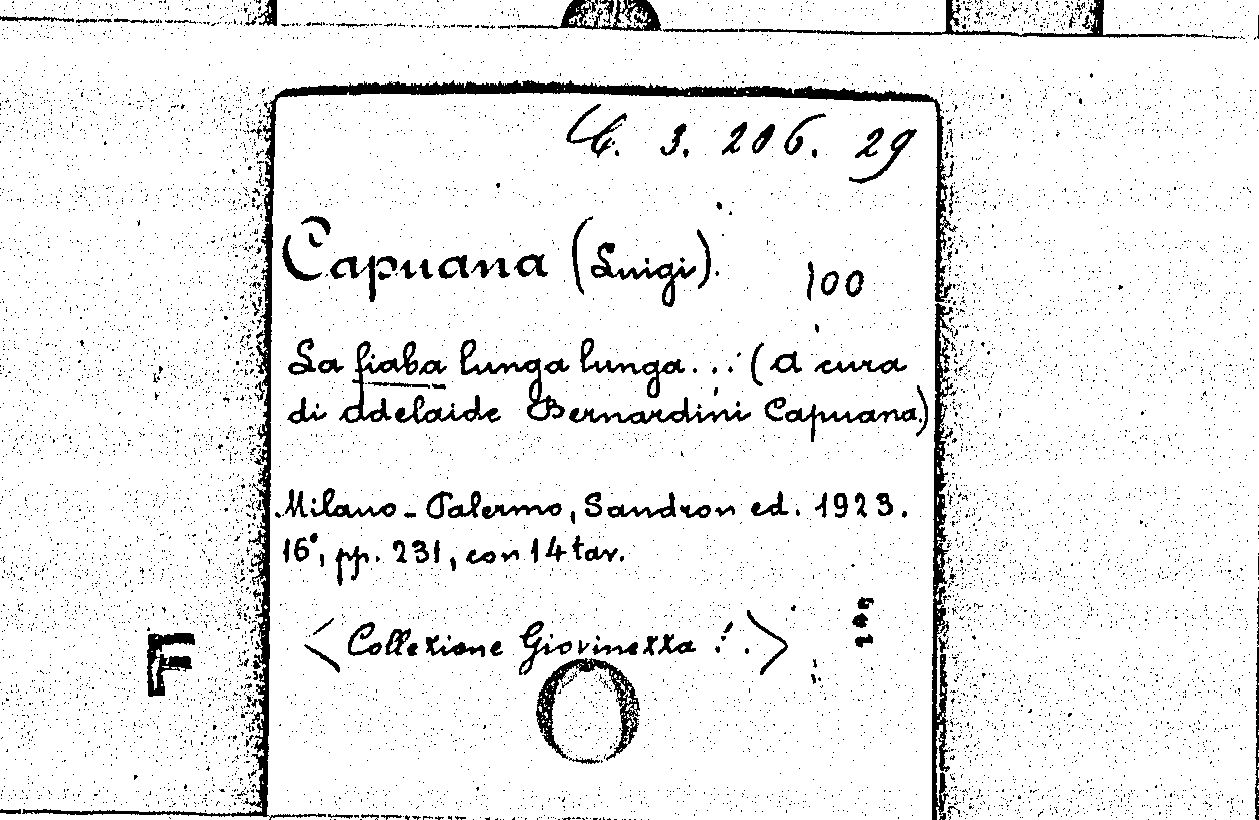 C. 3. 206. 29
Capuana (Luigi).
100
La fiaba lunga lunga... (A cura
di Adelaide Bernardini Capuana.)
Milano - Palermo, Sandron ed. 1923.
16°, pp. 231, con 14 tav.
< Collezione Giovinezza ! . >
F